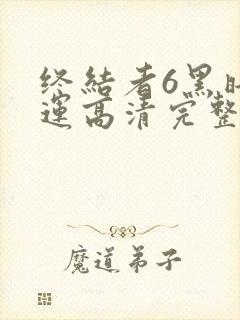 终结者6黑暗
运高清完整
魔道弟子